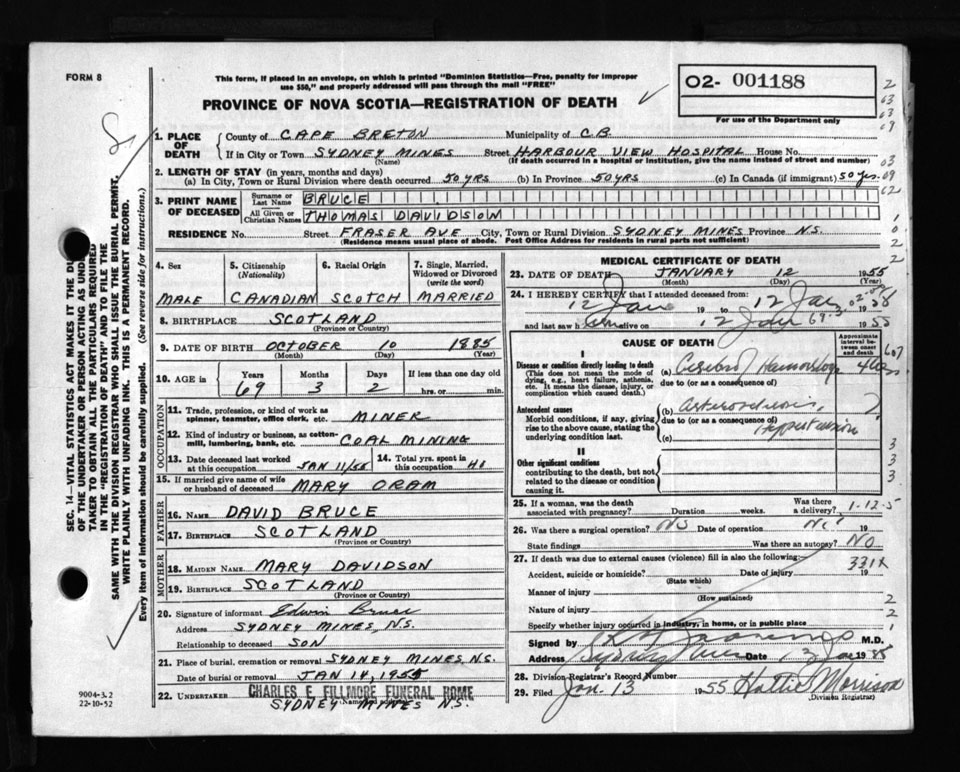 FORM 8
This form, if placed in an envelope, on which is printed "Dominion Statistics—Free, penalty for improper
use $50," and properly addressed will pass through the mail "FREE"
PROVINCE OF NOVA SCOTIA—REGISTRATION OF DEATH
02- 001188
For use of the Department only
SEC. 14—VITAL STATISTICS ACT MAKES IT THE
OF THE UNDERTAKER OR PERSON ACTING AS
TAKER TO OBTAIN ALL THE PARTICULARS REQUIRED
IN THE "REGISTRATION OF DEATH" AND TO FILE THE
SAME WITH THE DIVISION REGISTRAR WHO SHALL ISSUE THE BURIAL PERMIT.
WRITE PLAINLY WITH UNFADING INK. THIS IS A PERMANENT RECORD.
Every item of information should be carefully supplied. (See reverse side for instructions.)
1. PLACE OF DEATH
County of CAPE BRETON Municipality of C.B.
If in City or Town SYDNEY MINES Street HARBOUR VIEW HOSPITAL House No.
(Name) (If death occurred in a hospital or institution, give the name instead of street and number)
2. LENGTH OF STAY (in years, months and days)
(a) In City, Town or Rural Division where death occurred 50 YRS (b) In Province 50 YRS (c) In Canada (if immigrant) 50 yrs.
3. PRINT NAME OF DECEASED
Surname or Last Name BRUCE
All Given or Christian Names THOMAS DAVIDSON
RESIDENCE No. Street FRASER AVE City, Town or Rural Division SYDNEY MINES Province N.S.
(Residence means usual place of abode. Post Office Address for residents in rural parts not sufficient)
4. Sex 5. Citizenship (Nationality) 6. Racial Origin 7. Single, Married, Widowed or Divorced (write the word)
MALE CANADIAN SCOTCH MARRIED
8. BIRTHPLACE SCOTLAND
(Province or Country)
9. DATE OF BIRTH OCTOBER 10 1885
(Month) (Day) (Year)
10. AGE in Years Months Days If less than one day old
69 3 2 hrs. or min.
OCCUPATION
11. Trade, profession, or kind of work as spinner, teamster, office clerk, etc. MINER
12. Kind of industry or business, as cotton-mill, lumbering, bank, etc. COAL MINING
13. Date deceased last worked at this occupation JAN 11/55 14. Total yrs. spent in this occupation 40
15. If married give name of wife or husband of deceased MARY ORAM
FATHER
16. NAME DAVID BRUCE
17. BIRTHPLACE SCOTLAND
(Province or Country)
MOTHER
18. MAIDEN NAME MARY DAVIDSON
19. BIRTHPLACE SCOTLAND
(Province or Country)
20. Signature of informant Edwin Bruce
Address SYDNEY MINES, N.S.
Relationship to deceased SON
21. Place of burial, cremation or removal SYDNEY MINES, N.S.
Date of burial or removal JAN 14, 1955
22. UNDERTAKER CHARLES E. FILLMORE FUNERAL HOME
SYDNEY MINES N.S.
9004-3.2
22-10-52
MEDICAL CERTIFICATE OF DEATH
23. DATE OF DEATH JANUARY 12 1955
(Month) (Day) (Year)
24. I HEREBY CERTIFY that I attended deceased from:
12 Jan 19 to 12 Jan
and last saw h alive on 12 Jan 1955
CAUSE OF DEATH
Approximate interval between onset and death
I
Disease or condition directly leading to death
(This does not mean the mode of dying, e.g., heart failure, asthenia, etc. It means the disease, injury, or complication which caused death.)
(a) Cerebral Haemorrhage
due to (or as a consequence of)
Antecedent causes
Morbid conditions, if any, giving rise to the above cause, stating the underlying condition last.
(b) Arteriosclerosis, ?
due to (or as a consequence of)
Hypertension
(c)
II
Other significant conditions
contributing to the death, but not related to the disease or condition causing it.
25. If a woman, was the death associated with pregnancy? Duration weeks. Was there a delivery?
1-12-5
26. Was there a surgical operation? NO Date of operation 19
State findings Was there an autopsy? NO
27. If death was due to external causes (violence) fill in also the following:
331X
Accident, suicide or homicide? Date of injury 19
(State which)
Manner of injury
(How sustained)
Nature of injury
Specify whether injury occurred in industry, in home, or in public place
Signed by M.D.
Address Sydney Mines Date 13 Jan
28. Division Registrar's Record Number
29. Filed Jan. 13 1955 Hattie Morrison
(Division Registrar)